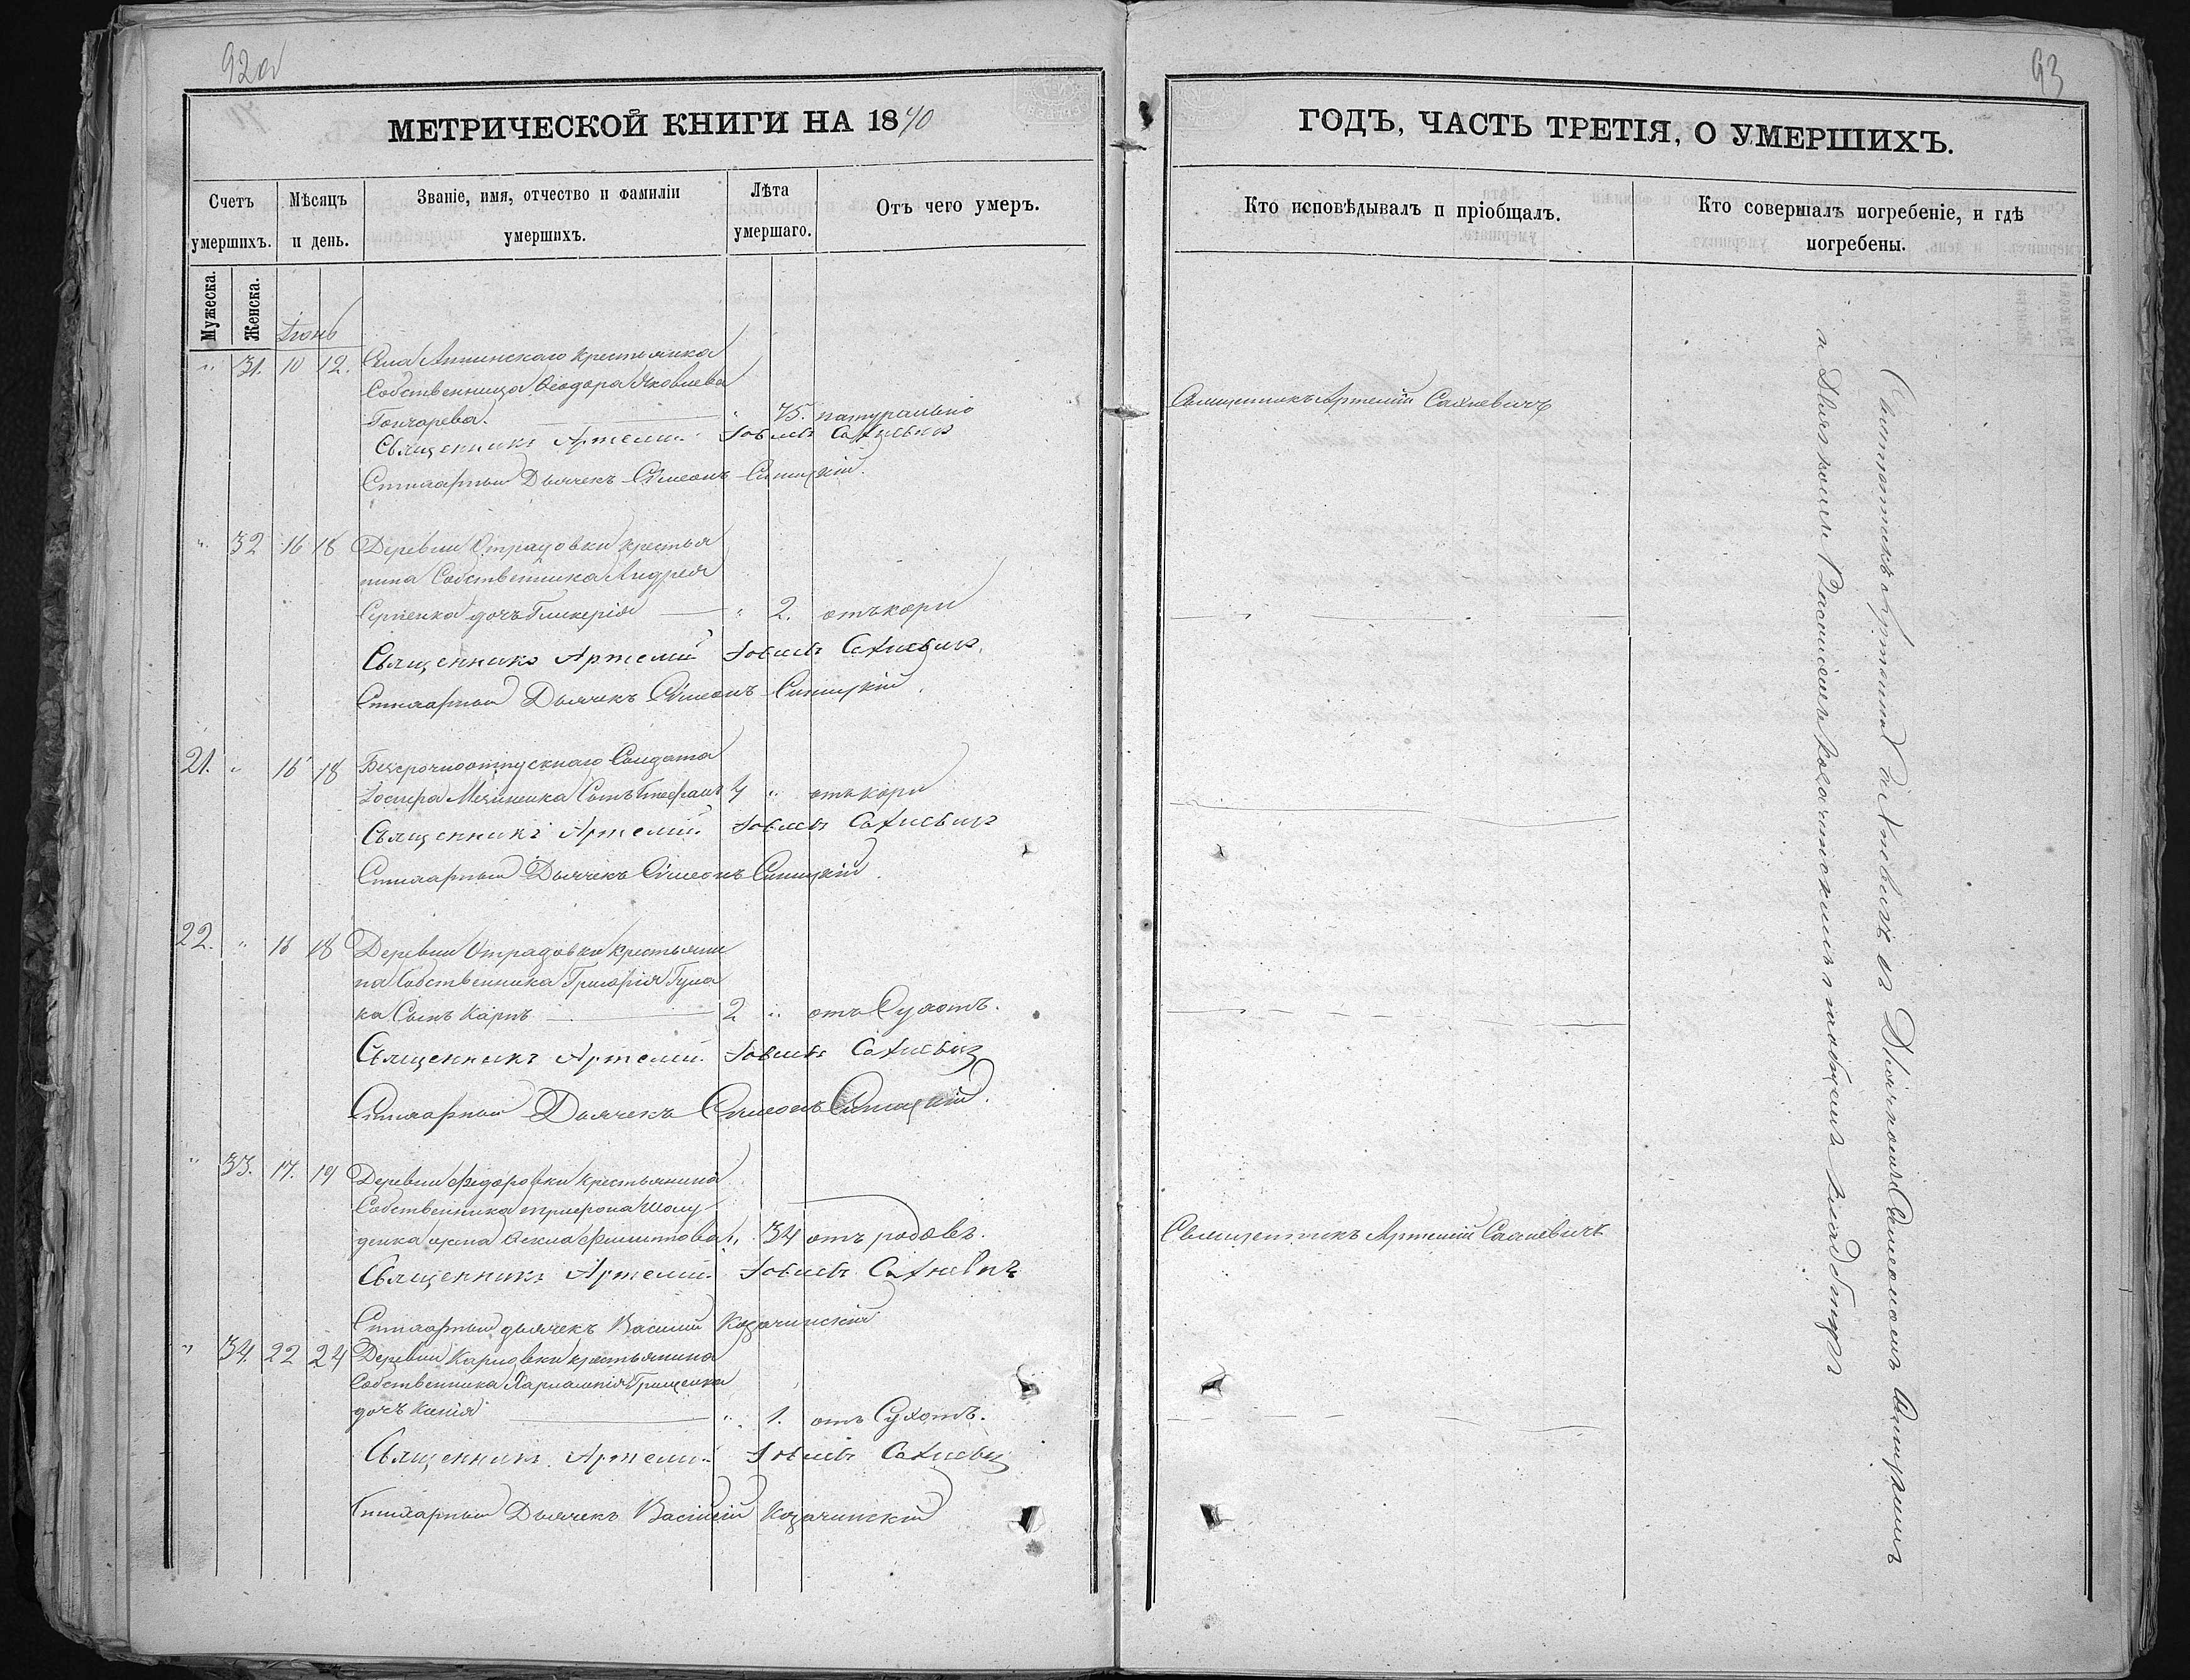 92об
93
МЕТРИЧЕСКОЙ КНИГИ НА 1870
Счетъ умершихъ.
Мѣсяцъ и день.
Званіе, имя, отчество и фамиліи умершихъ.
Лѣта умершаго.
Отъ чего умеръ.
Мужеска.
Женска.
Іюнь
" 31. 10 12. Села Аннинскаго крестьянка
Собственница Ѳеодора Яковлева
Гончарева. — " 75. натурально
Священникъ Артемій Іовлевъ Сахневичъ
Стихарный Дьячекъ Сѵмеонъ Синицкій.
" 32 16 18 Деревни Отрадовки крестья
нина Собственника Андрея
дочь Гликерія — " 2. отъ кори
Священникъ Артемій Іовлевъ Сахневичъ.
Стихарный Дьячекъ Сѵмеонъ Синицкій.
21. " 16 18 Безсрочноотпускнаго Солдата
Іосифа Сынъ Стефанъ 4 " отъ кори
Священникъ Артемій Іовлевъ Сахневичъ
Стихарный Дьячекъ Сѵмеонъ Синицкій.
22. " 16 18 Деревни Отрадовки крестьяни
на Собственника Григорія Гула
ка Сынъ Карпъ — 2 " отъ Сухотъ.
Священникъ Артемій Іовлевъ Сахневичъ
Стихарный Дьячекъ Сѵмеонъ Синицкій.
" 33. 17. 19 Деревни Федоровки крестьянина
Собственника Трифона Шолу
денка жена Ѳекла Филиппова " 34 отъ родовъ.
Священникъ Артемій Іовлевъ Сахневичъ
Стихарный дьячекъ Василій Козачинскій
" 34. 22 24 Деревни Карловки крестьянина
Собственника Харлампія Грищенка
дочь — " 1. отъ Сухотъ.
Священникъ Артемій Іовлевъ Сахневичъ
Стихарный Дьячекъ Василій Козачинскій
ГОДЪ, ЧАСТЬ ТРЕТІЯ, О УМЕРШИХЪ.
Кто исповѣдывалъ и пріобщалъ.
Кто совершалъ погребеніе, и гдѣ погребены.
Священникъ Артемій Сахневичъ
Священникъ Артемій Сахневичъ
Священникъ Артемій Сахневичъ съ Дьячкомъ Сѵмеономъ Синицкимъ
и Дьячкомъ Василіемъ Козачинскимъ на общемъ кладбищѣ